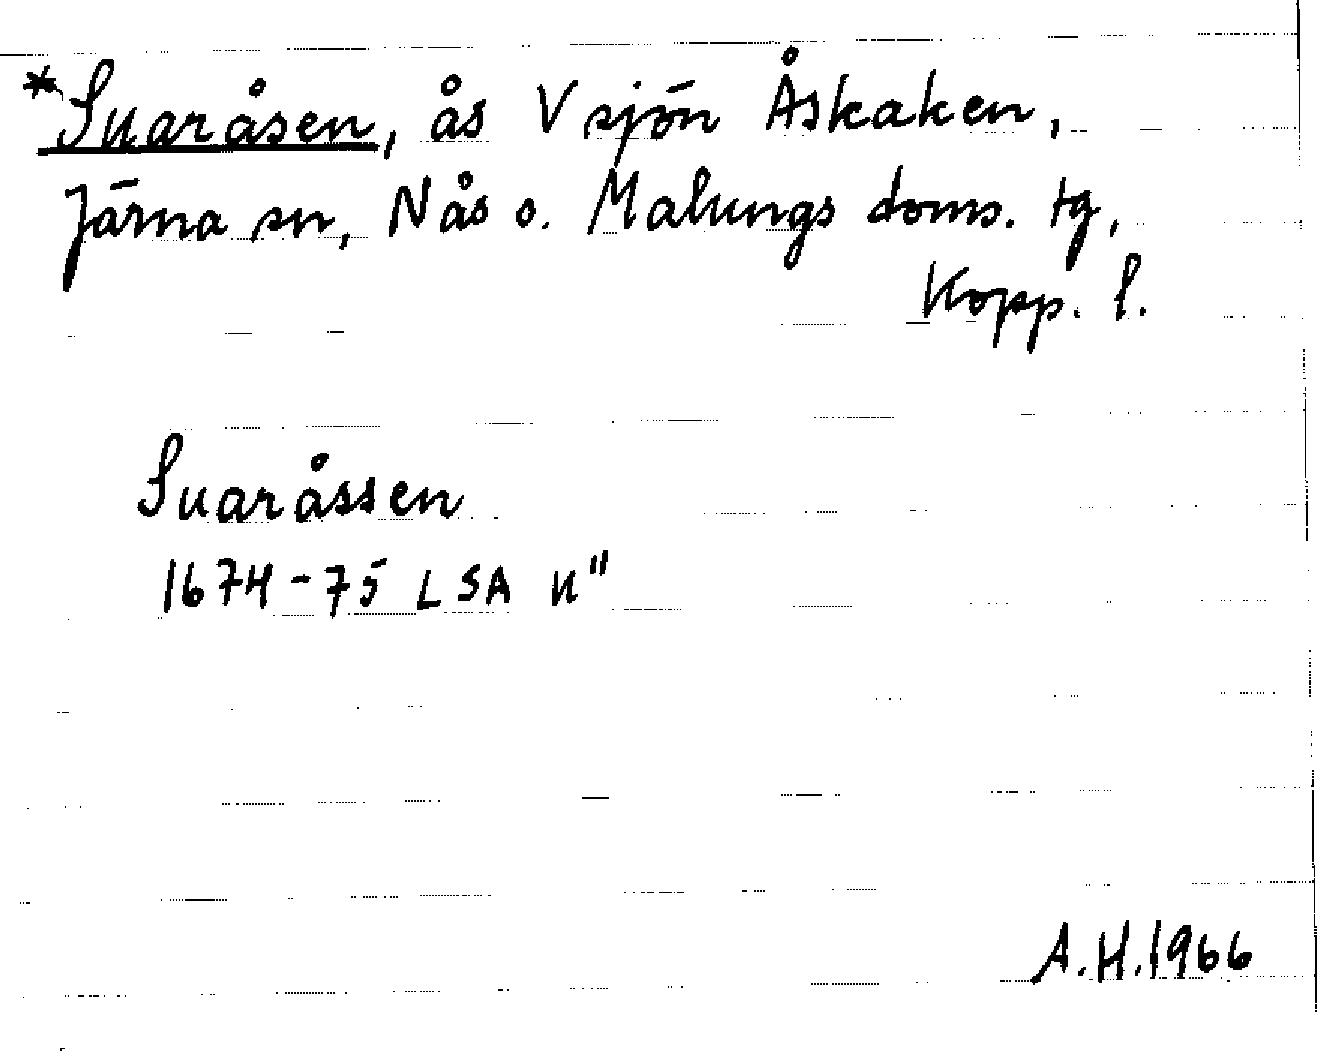 *Suaråsen, ås V sjön Åskaken,
Järna sn, Nås o. Malungs doms. tg,
Kopp. l.
Suaråssen
1674-75 LSA n"
A.H.1966